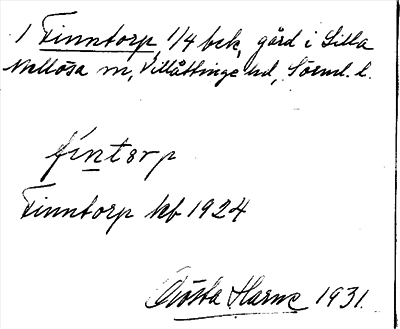 1 Finntorp, 1/4 bck, gård i Lilla
Mellösa sn, Villåttinge hd, Sörml. l.
fintɘrp
Finntorp kb 1924
Gösta Harne 1931.